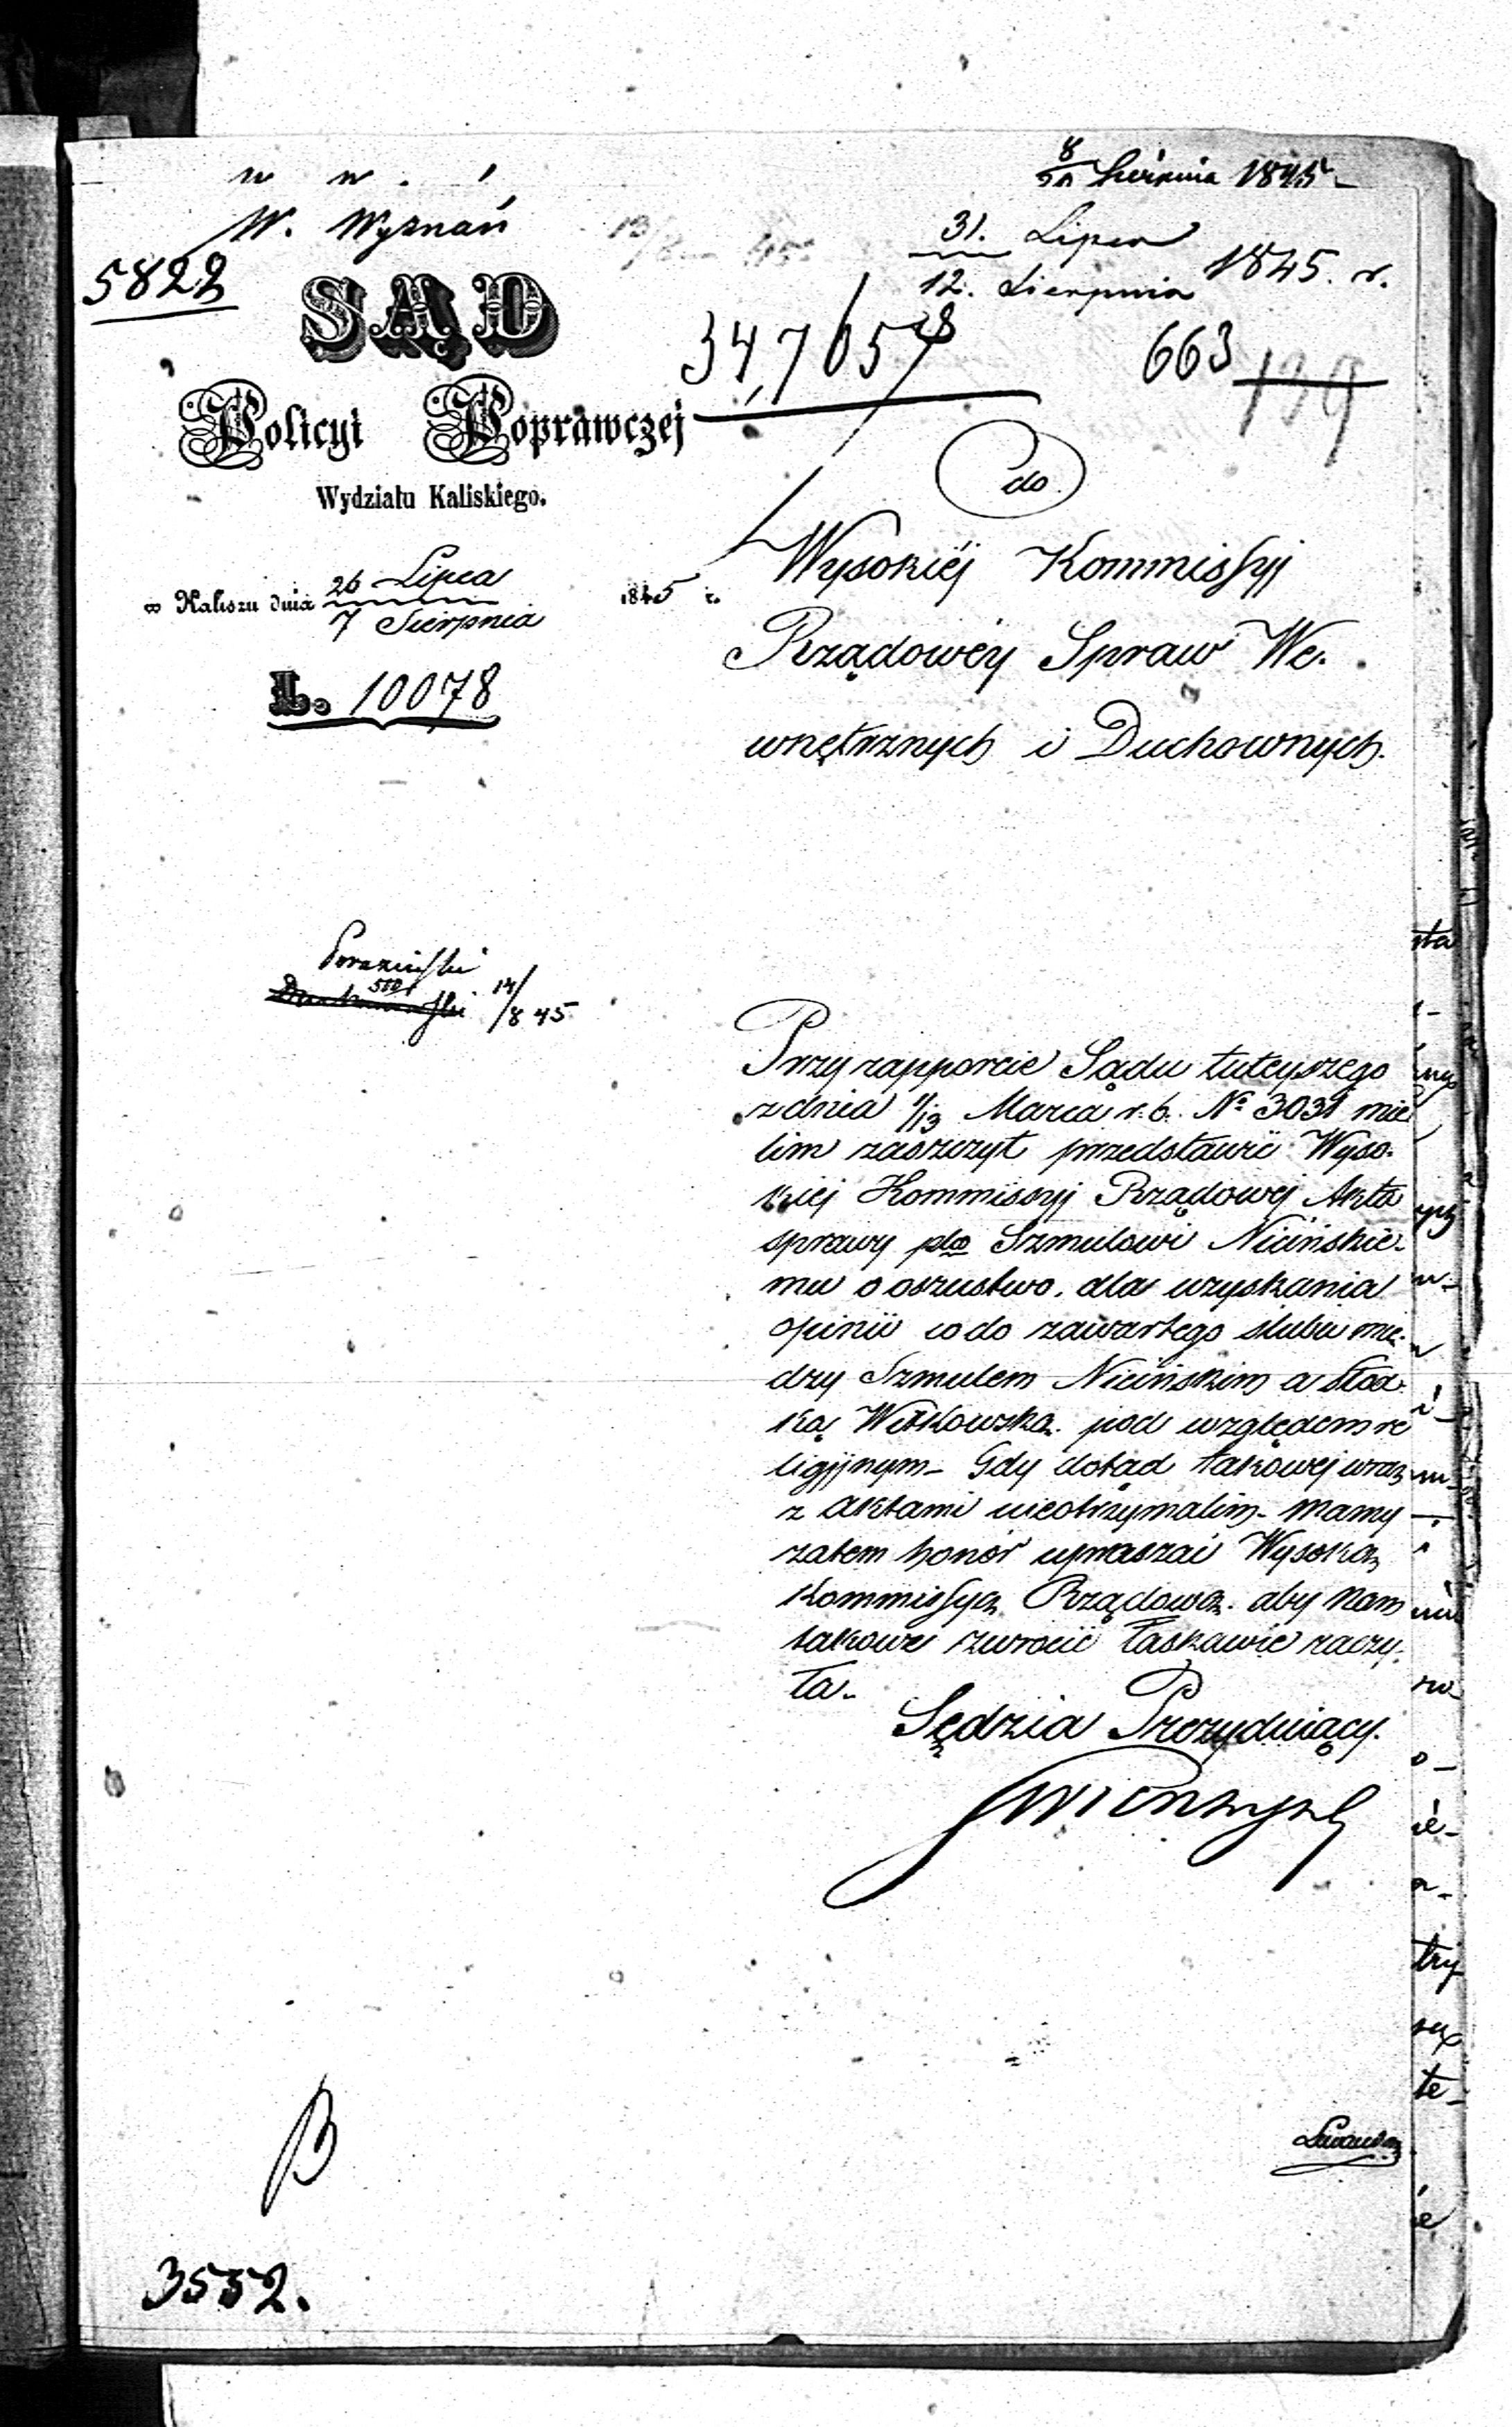 8/20 Sierpnia 1845
W. Wyznań
31. Lipca
12. Sierpnia 1845. r.
5822
SĄD
Policyi Poprawczej
Wydziału Kaliskiego.
34,7657
8
663
139
do
w Kaliszu dnia 26 Lipca
7 Sierpnia 1845 r.
L. 10078
Wysokiéj Kommissyj
Rządowéy Spraw We.
wnętrznych i Duchownych.
14/8 45
Przy rapporcie Sądu tuteyszego
z dnia 1/13 Marca r. b. No 3031 mie
lim zaszczyt przedstawić Wyso-
kiej Kommissyj Rządowej Akta
sprawy plko Szmulowi Nicińskie-
mu o oszustwo, dla uzyskania
opinii co do zawartego ślubu mię-
dzy Szmulem Nicińskim a Słod-
ką Witkowską pod względem re
ligijnym – Gdy dotąd takowej wraz
z Aktami nieotrzymalim – mamy
zatem honor upraszać Wysoką
Kommissyą Rządową aby nam
takowe zwrócić łaskawie raczy-
ła.
Sędzia Prezydujący.
B
3552.